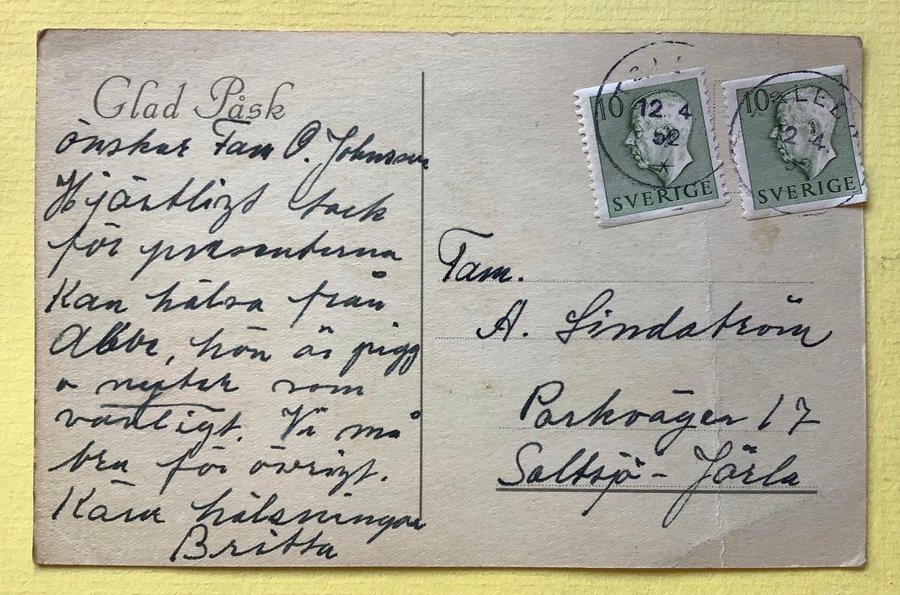 Glad Påsk
önskar Fam O. Johnsson
Hjärtligt tack
för presenterna
Kan hälsa från
Abbe, hon är pigg
o nyter som
vanligt. Vi må
bra för övrigt.
Kära hälsningar
Britta
10
SVERIGE
10
SVERIGE
12. 4
52
2. 4.
Fam.
A. Lindström
Parkvägen 17
Saltsjö-Järla